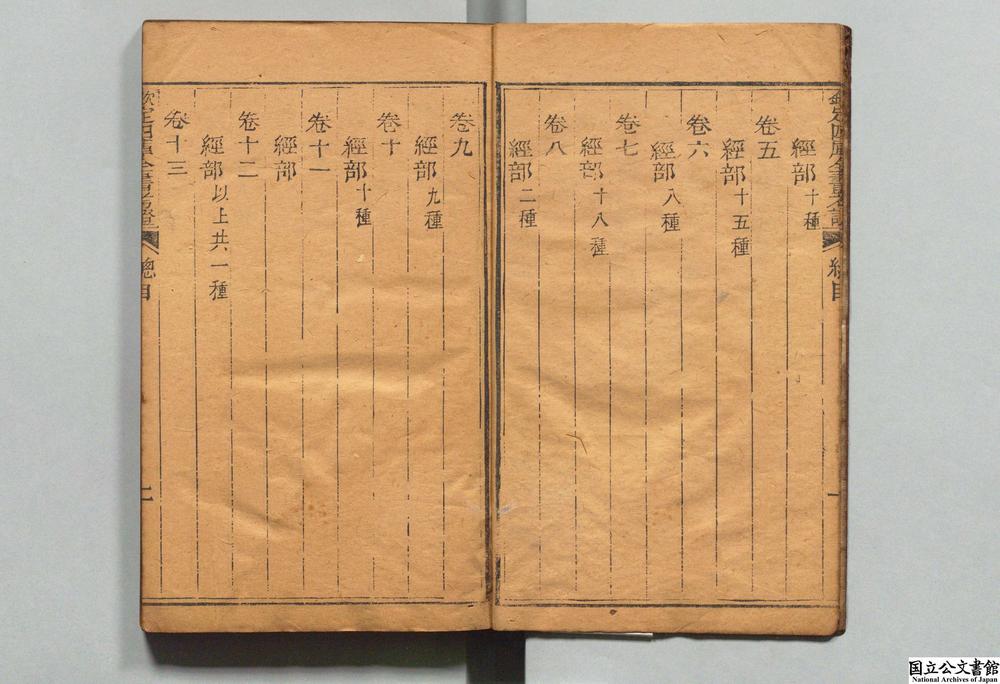 經部十種
卷五
經部十五種
卷六
經部八種
卷七
經部十八種
卷八
經部二種
卷九
經部九種
卷十
經部十種
卷十一
經部
卷十二
經部以上共一種
卷十三
欽定四庫全書考證
總目
二
欽定四庫全書考證
總目
一
国立公文書館
National Archives of Japan